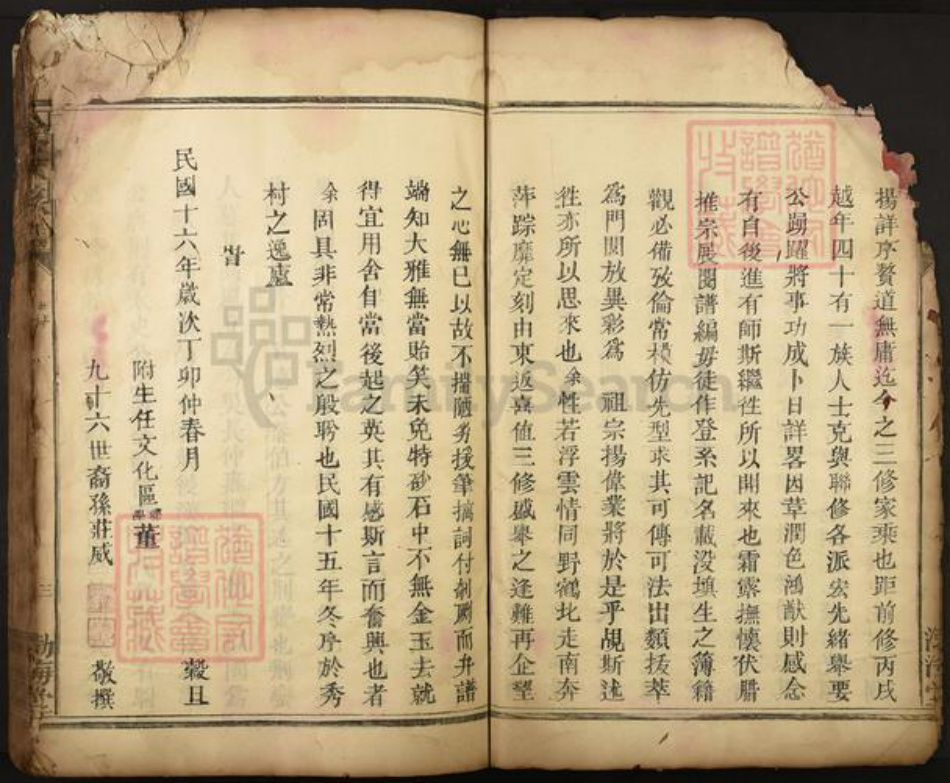 揚詳序贅道無庸迄今之三修家乘也距前修丙戌
越年四十有一族人士克與聯修各派宏先緒舉要
公踴躍將事功成卜日詳畧因草潤色鴻猷則感念
有自後進有師斯繼徃所以開來也霜露撫懷伏腊
推宗展閱譜編毋徒作登系記名載没填生之簿籍
觀必備攷倫常模仿先型求其可傳可法出類拔萃
爲門閭放異彩爲 祖宗揚偉業將於是乎覘斯述
徃亦所以思來也余性若浮雲情同野鶴北走南奔
萍踪靡定刻由東返喜值三修盛舉之逢難再企望
之心無已以故不揣陋劣援筆摛詞付剞劂而弁譜
端知大雅無當貽笑未免特砂石中不無金玉去就
得宜用舍自當後起之英其有感斯言而奮興也者
余固具非常熱烈之殷盼也民國十五年冬序於秀
村之逸廬
旹
民國十六年歲次丁卯仲春月 穀旦
附生任文化區董
九十六世裔孫莊威 敬撰
三
渤海堂
FamilySearch
猶他家
譜學會
收藏
猶他家
譜學會
收藏